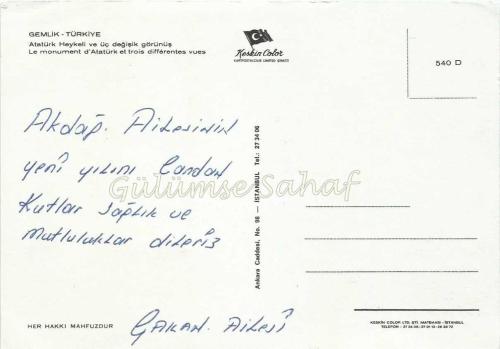 GEMLİK - TÜRKİYE
Atatürk Heykeli ve üç değişik görünüş
Le monument d'Atatürk et trois différentes vues
Keskin Color
KARTPOSTALCILIK LIMITED ŞİRKETİ
540 D
Akdağ. Ailesinin
yeni yılını Candan
Kutlar sağlık ve
mutluluklar dileriz
Gülümse Sahaf
Ankara Caddesi, No. 98 — İSTANBUL Tel.: 27 34 06
HER HAKKI MAHFUZDUR
Ailesi
KESKİN COLOR LTD. ŞTİ. MATBAASI - İSTANBUL